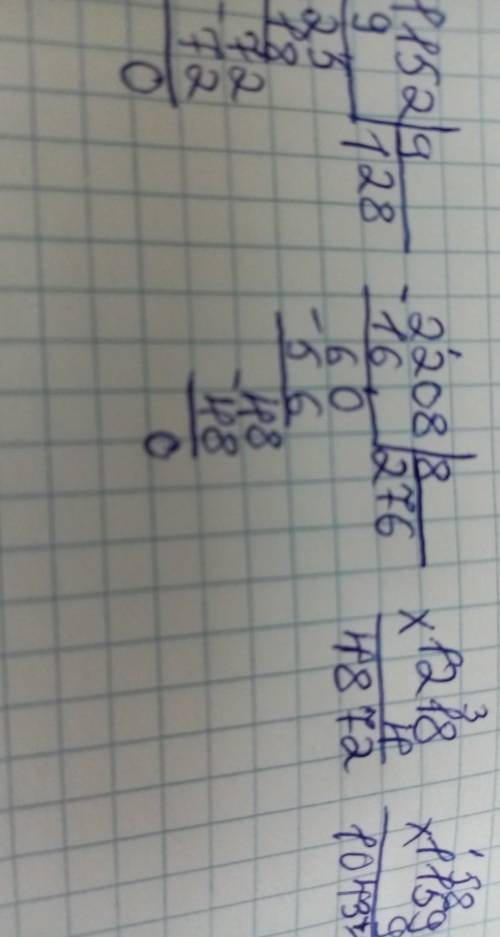 1152|9
9 128
25
18
72
-72
0
-2208|8
16 276
60
-56
48
-48
0
3
×1218
4
4872
1 5 8
×1159
9
1043